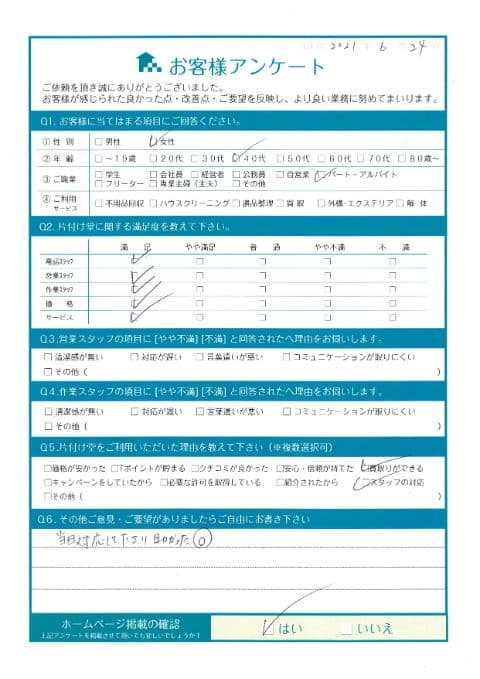 2021 6 24
お客様アンケート
ご依頼を頂き誠にありがとうございました。
お客様が感じられた良かった点・改善点・ご要望を反映し、より良い業務に努めてまいります。
Q1. お客様に当てはまる項目にご回答ください。
①性 別 □男性 ☑女性
②年 齢 □〜19歳 □20代 □30代 ☑40代 □50代 □60代 □70代 □80歳〜
③ご職業 □学生 □会社員 □経営者 □公務員 □自営業 ☑パート・アルバイト
□フリーター □専業主婦（主夫） □その他
④ご利用サービス □不用品回収 □ハウスクリーニング □遺品整理 □買 取 □外構・エクステリア □解 体
Q2. 片付け堂に関する満足度を教えて下さい。
満 足 やや満足 普 通 やや不満 不 満
電話スタッフ ☑ □ □ □ □
営業スタッフ ☑ □ □ □ □
作業スタッフ ☑ □ □ □ □
価 格 ☑ □ □ □ □
サービス ☑ □ □ □ □
Q3.営業スタッフの項目に [やや不満] [不満] と回答された方へ理由をお伺いします。
□清潔感が無い □対応が遅い □言葉遣いが悪い □コミュニケーションが取りにくい
□その他（ ）
Q4.作業スタッフの項目に [やや不満] [不満] と回答された方へ理由をお伺いします。
□清潔感が無い □対応が遅い □言葉遣いが悪い □コミュニケーションが取りにくい
□その他（ ）
Q5.片付け堂をご利用いただいた理由を教えて下さい（※複数選択可）
□価格が安かった □Tポイントが貯まる □クチコミが良かった □安心・信頼が持てた ☑買取りができる
□キャンペーンをしていたから □必要な許可を取得している □紹介されたから ☑スタッフの対応
□その他（ ）
Q6. その他ご意見・ご要望がありましたらご自由にお書き下さい
当日対応して下さり助かった
ホームページ掲載の確認
上記アンケートを掲載させて頂いても宜しいでしょうか？
☑はい □いいえ